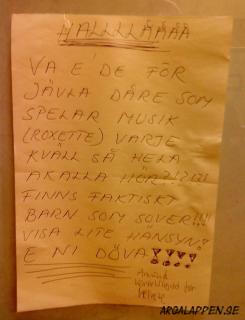 HALLLLÅÅÅÅ
VA E' DE FÖR
JÄVLA DÅRE SOM
SPELAR MUSIK
(ROXETTE) VARJE
KVÄLL SÅ HELA
AKALLA HÖR?!?!?!
FINNS FAKTISKT
BARN SOM SOVER!!!
VISA LITE HÄNSYN!
E NI DÖVA!!!!
Använd
ARGALAPPEN.SE